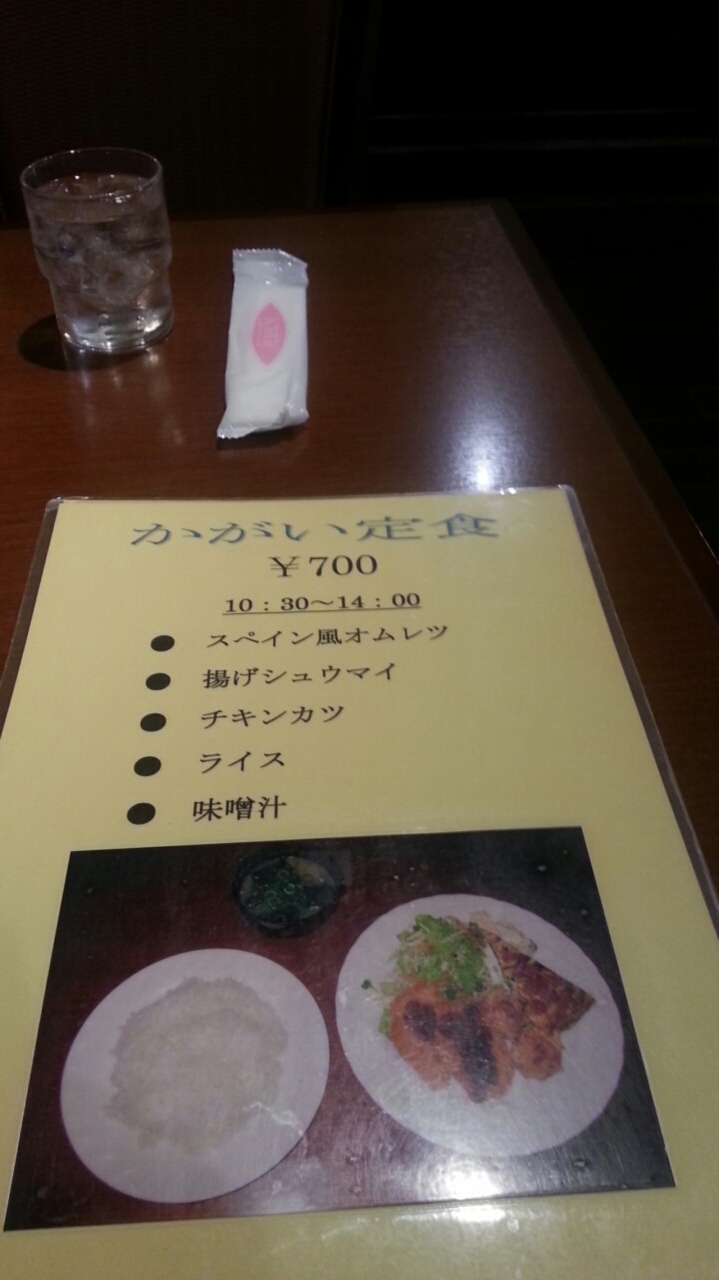 かがい定食
￥700
10：30～14：00
● スペイン風オムレツ
● 揚げシュウマイ
● チキンカツ
● ライス
● 味噌汁